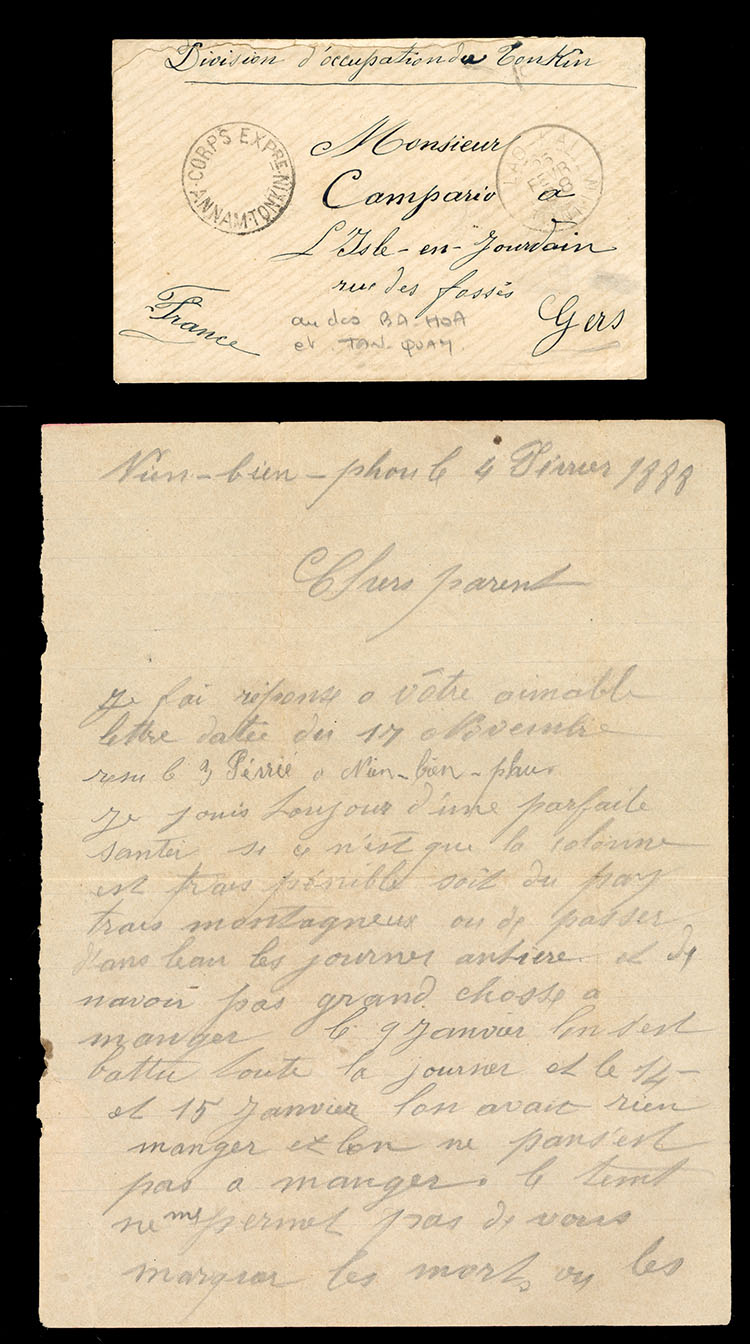 Division d'occupation du Tonkin
CORPS EXPRE-N
ANNAM-TONKIN
LAO-KAI
FEVR
Monsieur
Campario a
L'Isle-en-Jourdain
rue des fossés
Gers
France
au dos BA-HOA
et TAN-QUAY
Nien-bien-phou le 4 Févrrer 1888
Chers parent
Je fai réponse a vôtre aimable
lettre datée du 17 Novembre
resu le 3 Férrié a Nien-bien-phu
Je jouis toujour d'une parfaite
santer si ce n'est que la colonne
est trais pénible soit du pay
trais montagneux ou de passer
dans leau les journer antiere et de
navoir pas grand chosse a
manger le 9 Janvier lon s'est
battu toute la journer et le 14
et 15 Janvier lon avait rien
manger et lon ne pans'est
pas a manger. le temt
ne me permet pas de vous
marquer les morts ou les